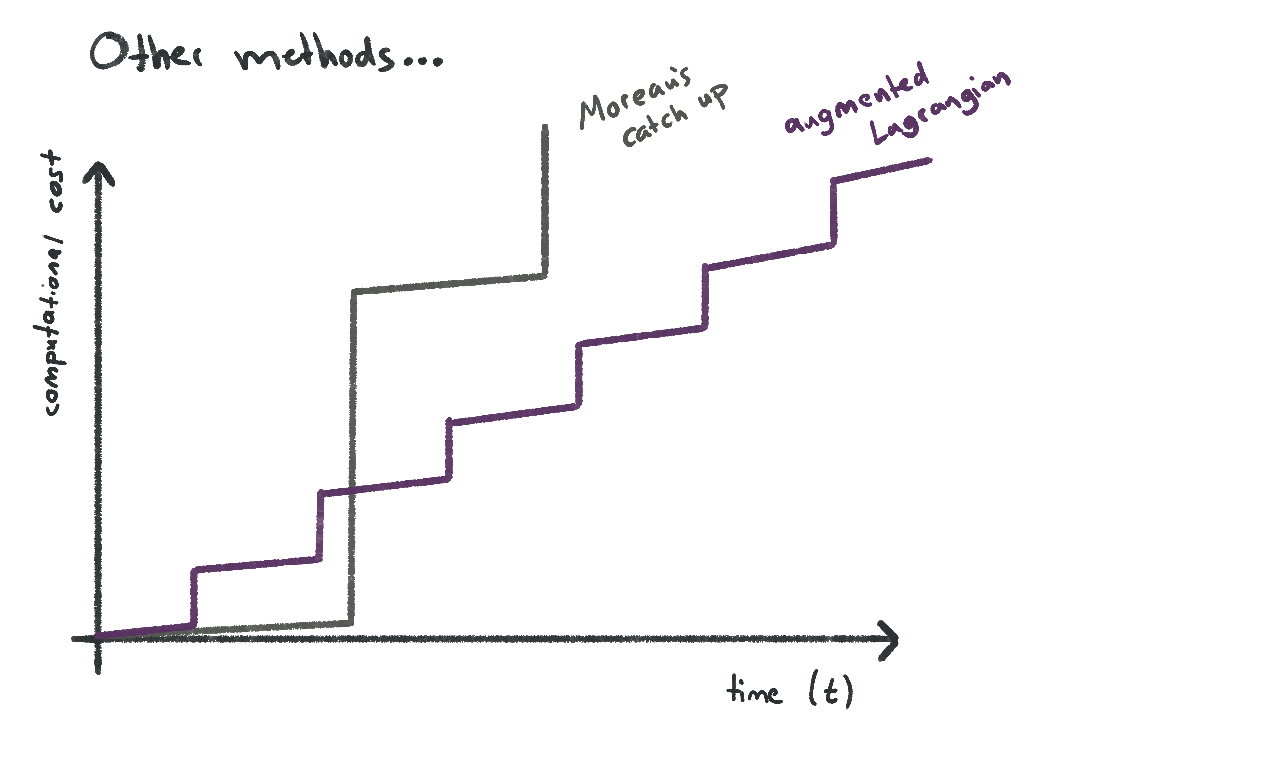 Other methods...
Moreau's
catch up
augmented
Lagrangian
computational cost
time (t)